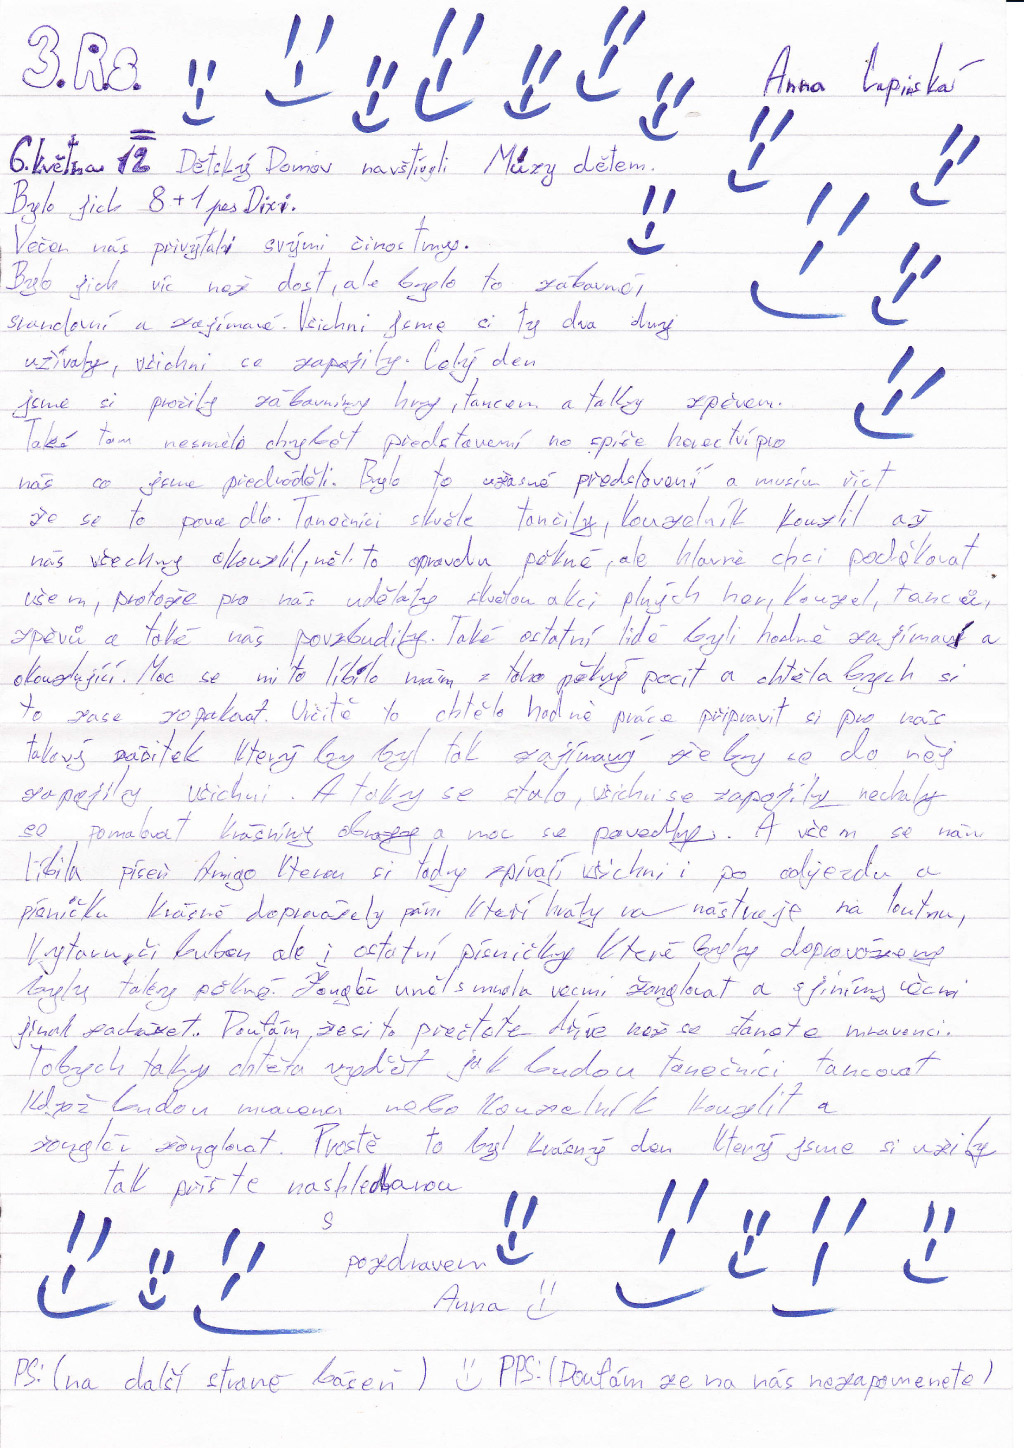 3.R.8.
Anna Lapinská
6. května 12 Dětský Domov navštívyli Múzy dětem.
Bylo jich 8 + 1 pes Dixi.
Večer nás přivýtali svými činostmy.
Bylo jich víc než dost, ale bylo to zábavné,
srandovní a zajímavé. Všichni jsme si ty dva dny
užívaly, všichni se zapojily. Celý den
jsme si prožily zábavnímy hry, tancem a taky zpěvem.
Také tam nesmělo chybět představení no spíše herectví pro
nás co jsme předváděli. Bylo to užasné představení a musím říct
že se to povedlo. Tanečníci skvěle tančily, kouzelník kouzlil až
nás všechny okouzlil, měl to opravdu pěkné, ale hlavně chci poděkovat
všem, protože pro nás udělaly skvělou akci plných her, kouzel, tanců,
zpěvů a také nás povzbudily. Také ostatní lidé byli hodně zajímaví a
okouzlující. Moc se mi to líbilo mám z toho pěkný pocit a chtěla bych si
to zase zopakovat. Určitě to chtělo hodně práce připravit si pro nás
takový zážitek který by byl tak zajímavý že by se do něj
zapojily všichni. A taky se stalo, všichni se zapojily nechaly
se pomalovat krásnímy obrazy a moc se povedly. A všem se nám
líbila píseň Amigo kterou si tady zpívají všichni i po odjezdu a
písničku krásně doprovázely páni kteří hrály na nástroje na loutnu,
kytaru, či buben ale i ostatní písničky které byly doprovázeny
byly taky pěkné. Žonglér uměl s mnola vecmi žonglovat a s jinímy věcmi
jinak zacházet. Doufám, že si to přečtete dříve než se stanete mravenci.
To bych taky chtěla vydět jak budou tanečníci tancovat
když budou mravenci nebo kouzelník kouzlit a
žonglér žonglovat. Prostě to byl krásný den který jsme si užily
tak příšte nashledanou
S
pozdravem
Anna
PS: (na další straně báseň) PPS: (Doufám že na nás nezapomenete)